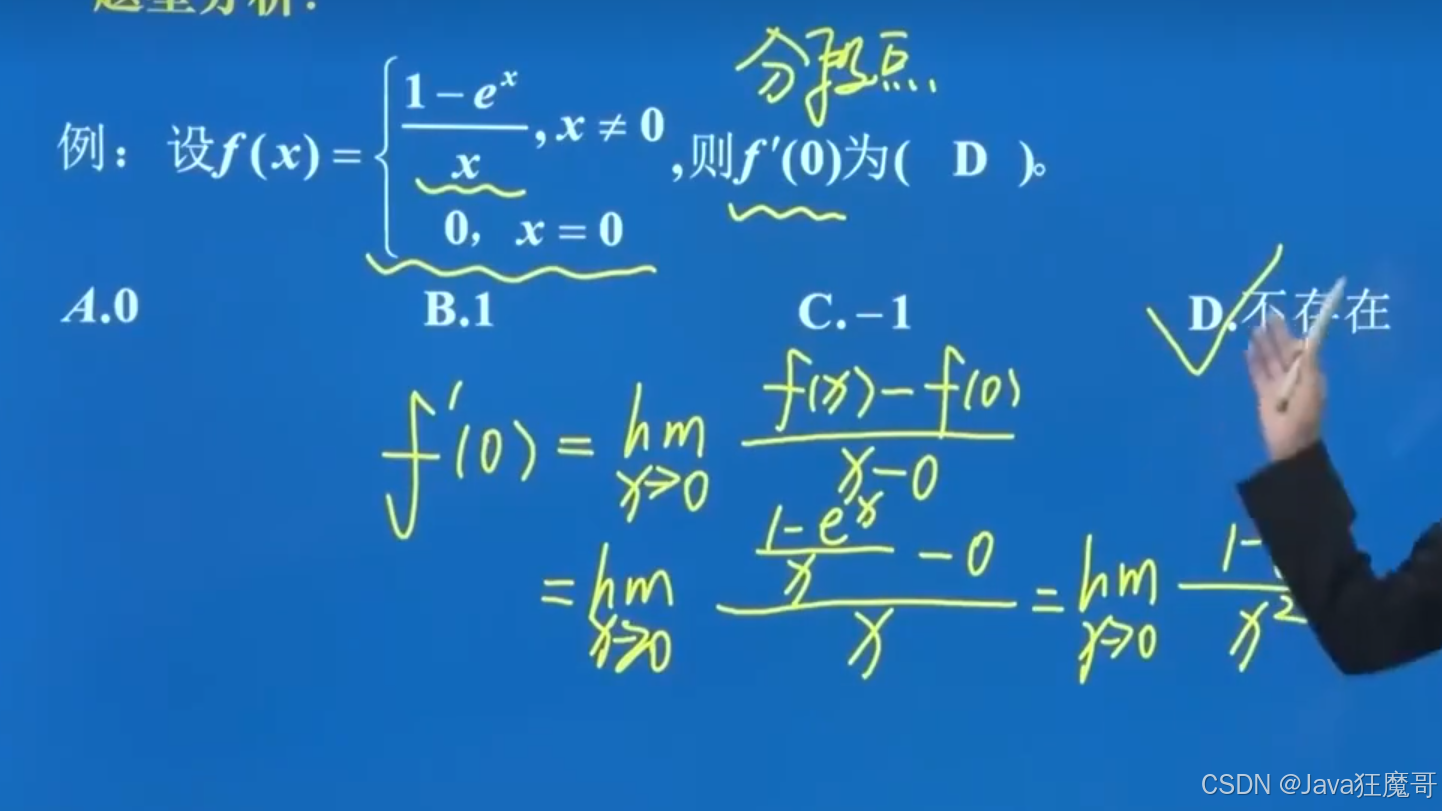 这里分析：
分段点
例：设f(x)={ (1-e^x)/x, x≠0
0, x=0 ,则f′(0)为( D )。
A.0 B.1 C.-1 D.不存在
f′(0) = lim x→0 (f(x)-f(0))/(x-0)
= lim x→0 ((1-e^x)/x - 0)/x = lim x→0 1-/x²
CSDN @Java狂魔哥